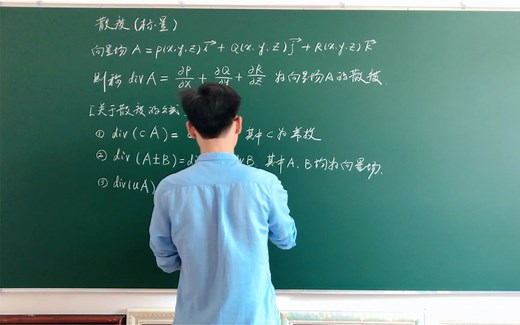 散度(标量)
向量场 A = P(x,y,z)i⃗ + Q(x,y,z)j⃗ + R(x,y,z)k⃗
则称 divA = ∂P/∂x + ∂Q/∂y + ∂R/∂z 为向量场A的散度.
[关于散度的公式
① div(cA) = 其中C为常数
② div(A±B)=di B, 其中A、B均为向量场.
③ div(uA)